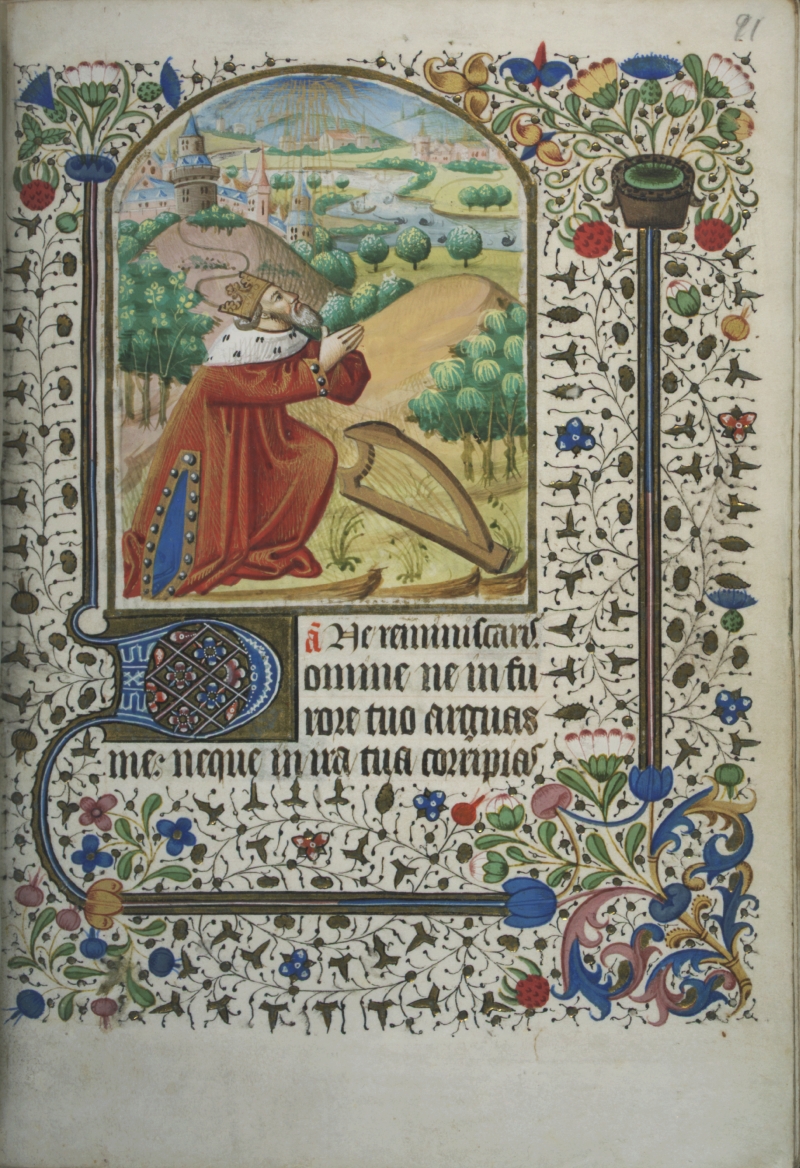 91
ā Ne reminiscaris.
omine ne in fu
rore tuo arguas
me: neque in ira tua corripias